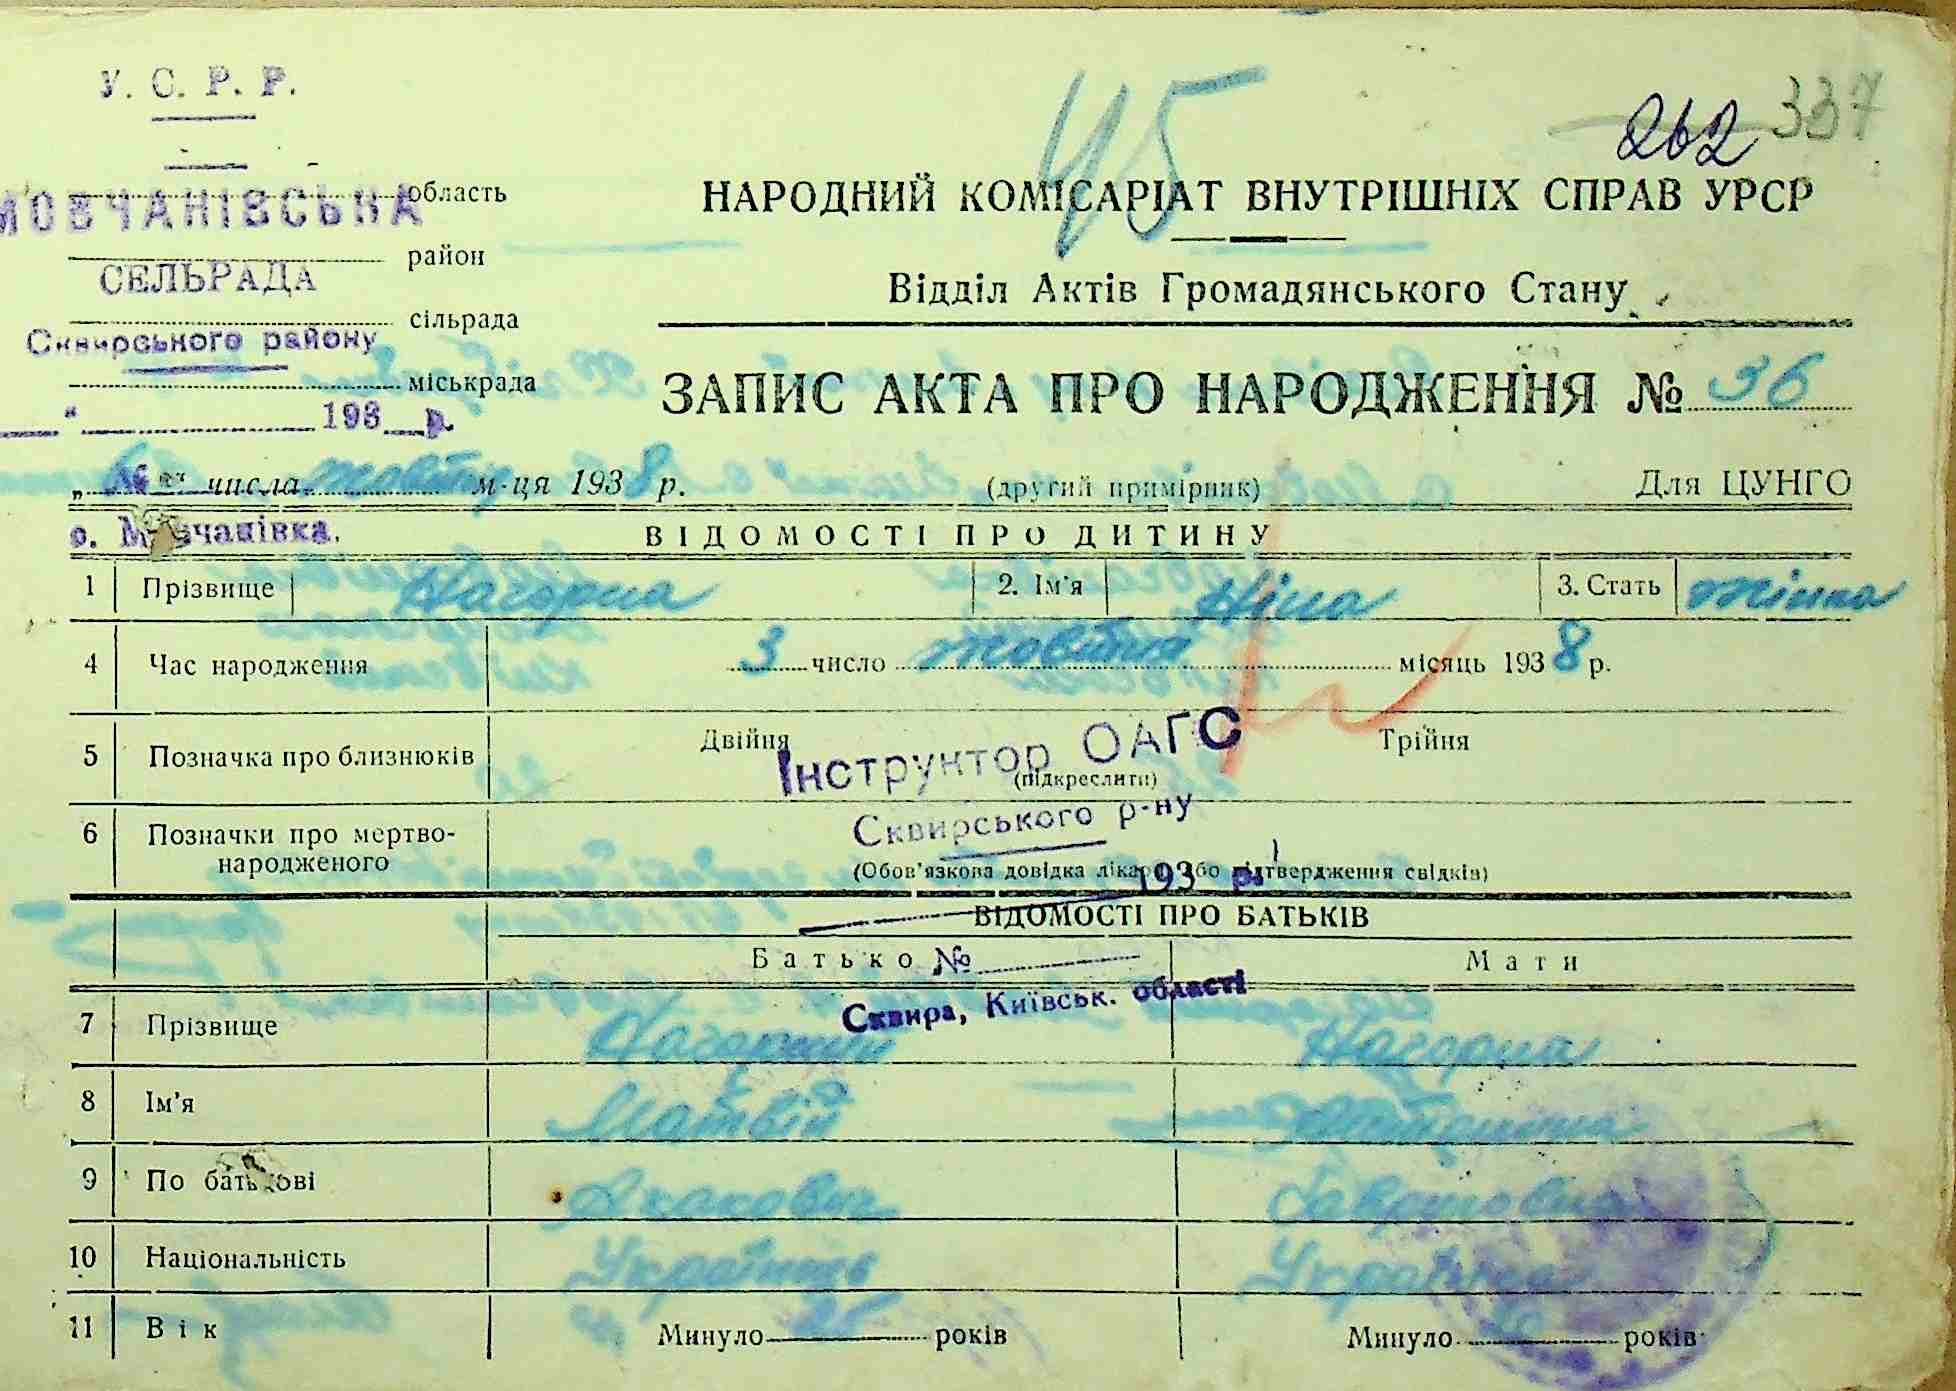 У. С. Р. Р.
45
262 337
МОВЧАНІВСЬКА область
НАРОДНИЙ КОМІСАРІАТ ВНУТРІШНІХ СПРАВ УРСР
район
СЕЛЬРАДА
Відділ Актів Громадянського Стану
сільрада
Сквирського району
міськрада
ЗАПИС АКТА ПРО НАРОДЖЕННЯ № 36
" 193 р.
" числа жовтня м-ця 1938 р. (другий примірник) Для ЦУНГО
с. Мовчанівка.
ВІДОМОСТІ ПРО ДИТИНУ
1 Прізвище Нагорна 2. Ім'я Ніна 3. Стать жінка
4 Час народження 3 число жовтня місяць 1938 р.
5 Позначка про близнюків Двійня Трійня
(підкреслити)
Інструктор ОАГС
Сквирського р-ну
6 Позначки про мертво-
народженого
(Обов'язкова довідка лікаря або підтвердження свідків)
193 р.
ВІДОМОСТІ ПРО БАТЬКІВ
Батько № Мати
Сквира, Київськ. області
7 Прізвище Нагорний Нагорна
8 Ім'я Матвій
9 По батькові Гавриловна
10 Національність Українець Українка
11 Вік Минуло 25 років Минуло років